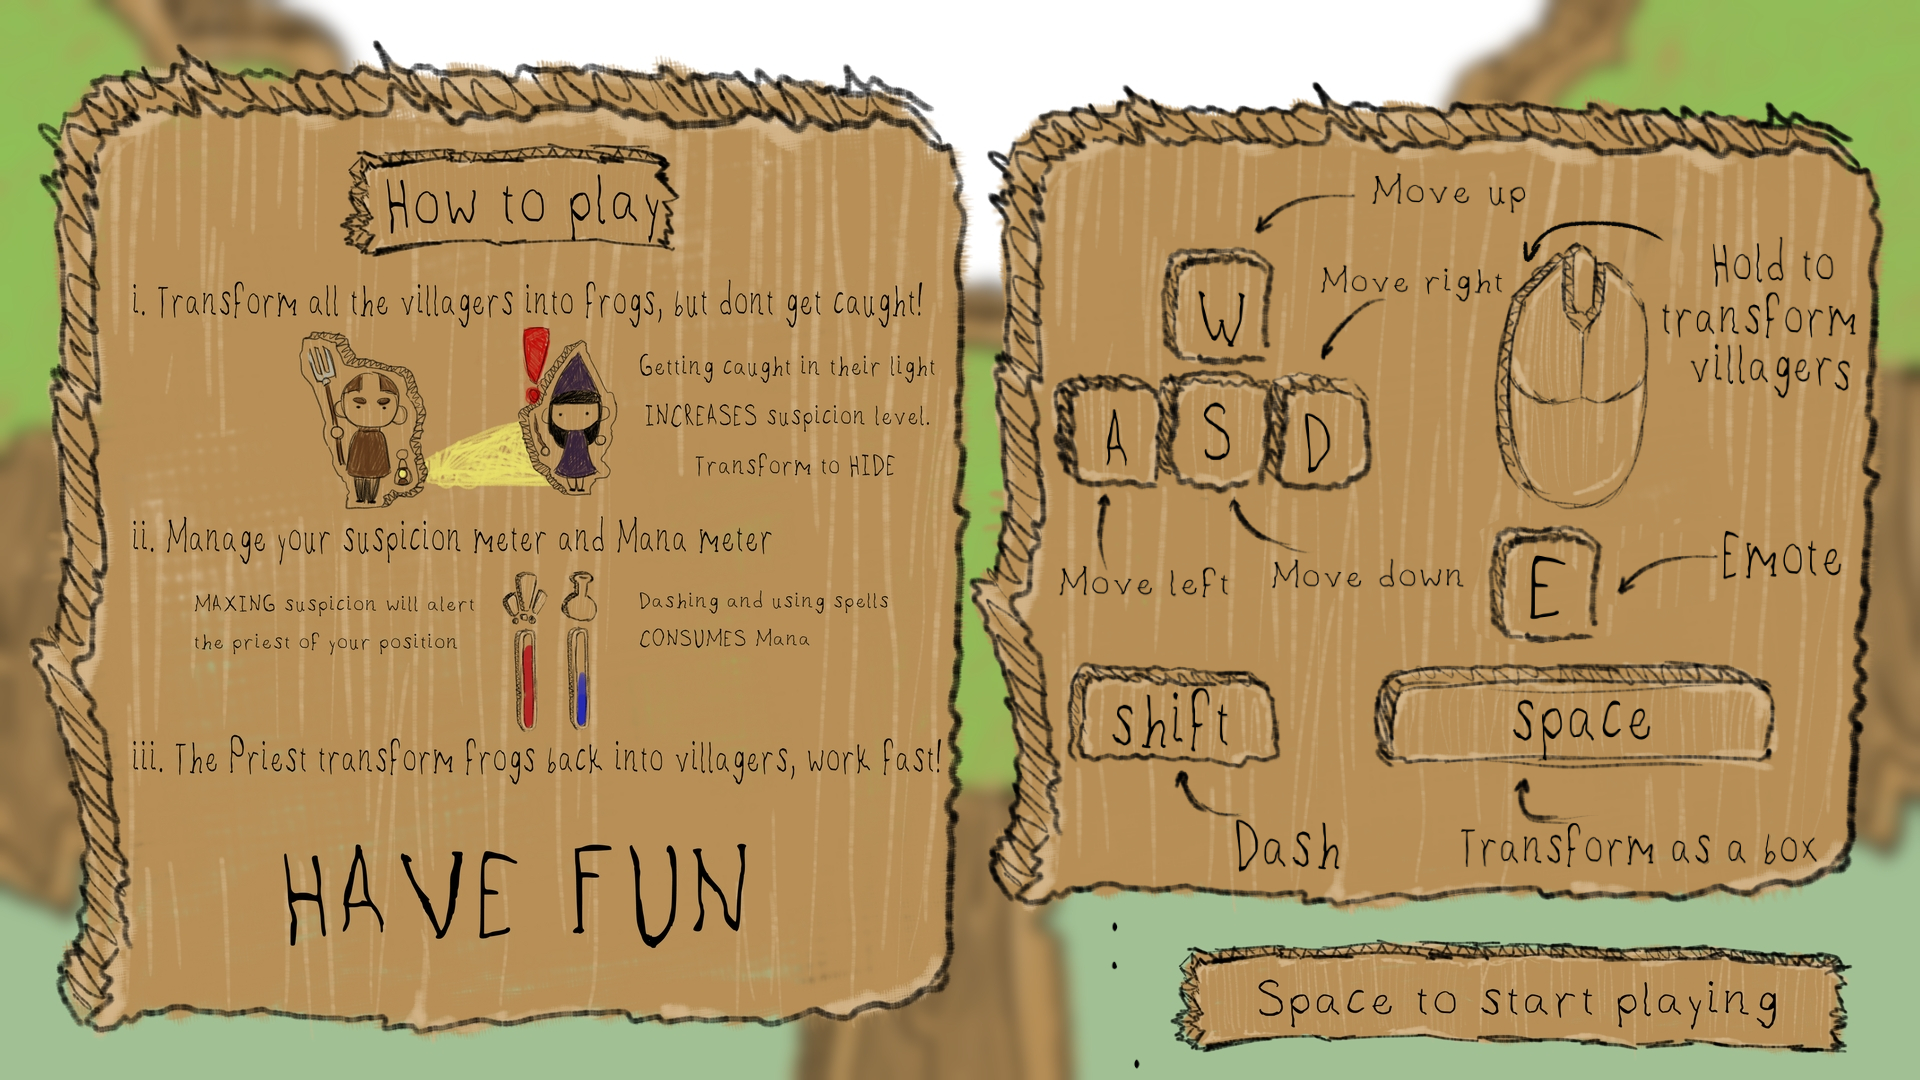 How to play
i. Transform all the villagers into frogs, but dont get caught!
Getting caught in their light
INCREASES suspicion level.
Transform to HIDE
ii. Manage your suspicion meter and Mana meter
MAXING suspicion will alert
the priest of your position
Dashing and using spells
CONSUMES Mana
iii. The Priest transform frogs back into villagers, work fast!
HAVE FUN
Move up
Move right
W
A
S
D
Move left
Move down
Hold to
transform
villagers
E
Emote
shift
space
Dash
Transform as a box
Space to start playing